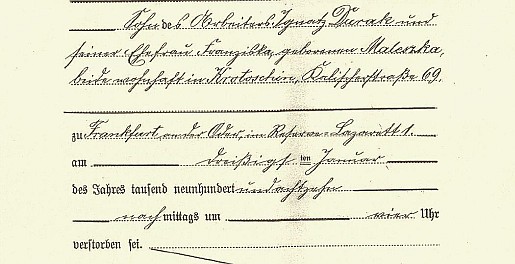 Sohn des Arbeiters Ignatz Durak und
seiner Ehefrau Franziska, geborenen Maleszka,
beide wohnhaft in Krotoschin, Kalischerstraße 69.
zu Frankfurt an der Oder, im Reserve-Lazarett 1.
am dreißigsten Januar
des Jahres tausend neunhundert und achtzehn
nach mittags um vier Uhr
verstorben sei.